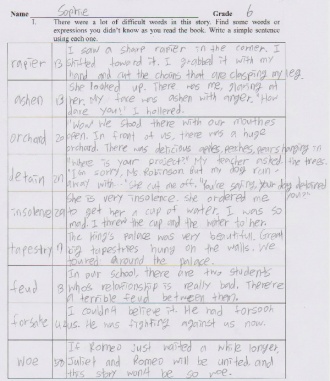 Name Sophie Grade 6
1. There were a lot of difficult words in this story. Find some words or
expressions you didn't know as you read the book. Write a simple sentence
using each one.
I saw a sharp rapier in the corner. I
rapier 13 shifted toward it. I grabbed it with my
hand and cut the chains that are clasping my leg.
She looked up. There was me, glaring at
ashen 13 her. My face was ashen with anger. "How
dare you!" I hollered.
"Wow! We stood there with our mouths
orchard 20 open. In front of us, there was a huge
orchard. There was delicious apples, peaches, pears hanging in
the trees.
"Where is your project?" My teacher asked
detain 21 "I'm sorry, Ms Robinson but my dog run-
away with-" She cut me off. "You're saying, your dog detained
you?"
She is very insolence. She ordered me
insolence 29 to get her a cup of water. I was so
mad. I threw the cup and the water to her.
The king's palace was very beautiful. Great
tapestry 7 big tapestries hung on the walls. We
toured around the palace.
In our school, there are two students
feud 8 who's relationship is really bad. There's
a terrible feud between them.
I couldn't believe it. He had forsook
forsake us. He was fighting against us now.
If Romeo just waited a while longer,
woe Juliet and Romeo will be united and
this story won't be so woe.